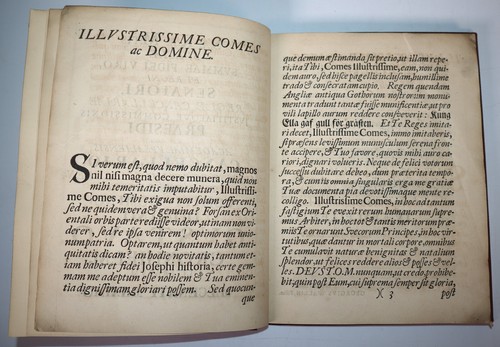 ILLVSTRISSIME COMES
ac DOMINE.
SI verum est, quod nemo dubitat, magnos
nil nisi magna decere munera, quod non
mihi temeritatis imputabitur, Illustriſſi-
me Comes, Tibi exigua non ſolum offerenti,
ſed ne quidem vera & genuina? Forſan ex Ori-
entali orbis parte rediiſſe videor, utinam non vi-
derer, ſed re ipſa venirem! optimorum inui-
num patria. Optarem, ut quantum habet anti-
quitatis dicam? an hodie novitatis, tantum et-
iam haberet fidei Joſephi hiſtoria, certe gem-
mam me adeptum eſſe nobilem & Tua eminen-
tia digniſſimam gloriari poſſem. Sed quocun-
que
que demum æſtimanda ſit pretio, ut illam repe-
ri, ita Tibi, Comes Illuſtriſſime, eam, non qui-
dem auro, ſed hiſce pagellis incluſam, humillime
trado & conſecratam cupio. Regem quendam
Angliæ antiqua Gothorum noſtrorum monu-
menta tradunt tantæ fuiſſe munificentiæ, ut pro
vili lapillo aurum reddere conſveverit: Kung
Ella gaf gull för gråſten. Et Te Reges imita-
ri decet, Illuſtriſſime Comes, immo imitaberis,
ſi præſens leviſſimum munuſculum ſerena fron-
te accipere, & Tuo favore, quovis mihi auro ca-
riori, dignari volueris. Neque de felici votorum
ſucceſſu dubitare debeo, dum præterita tempo-
ra, & cuntis omnia ſingularis erga me gratiæ
Tuæ documenta pia devotiſſimaque mente re-
colligo. Illuſtriſſime Comes, in hoc ad tantum
faſtigium Te evexit rerum humanarum ſupre-
mus Arbiter, in hoc tot & tantis meritorum præ-
miis Te ornarunt Svecorum Principes, in hoc vir-
tutibus, quæ dantur in mortali corpore, omnibus
Te cumulavit naturæ benignitas & natalium
ut felices reddere alios & poſſes & vel-
les. DEVS T.O.M. nunquam, ut credo, prohibe-
bit, quin poſt Eum, cui ſuprema ſemper ſit gloria,
)( 3
poſt